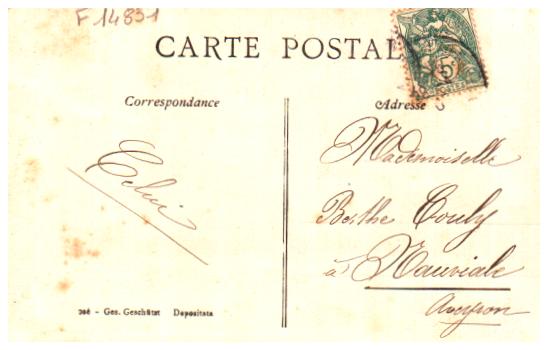 F 14831
CARTE POSTALE
5
POSTES
Correspondance
Adresse
Mademoiselle
Berthe Couly
à Nauviale
Aveyron
Ges. Geschützt Depositata